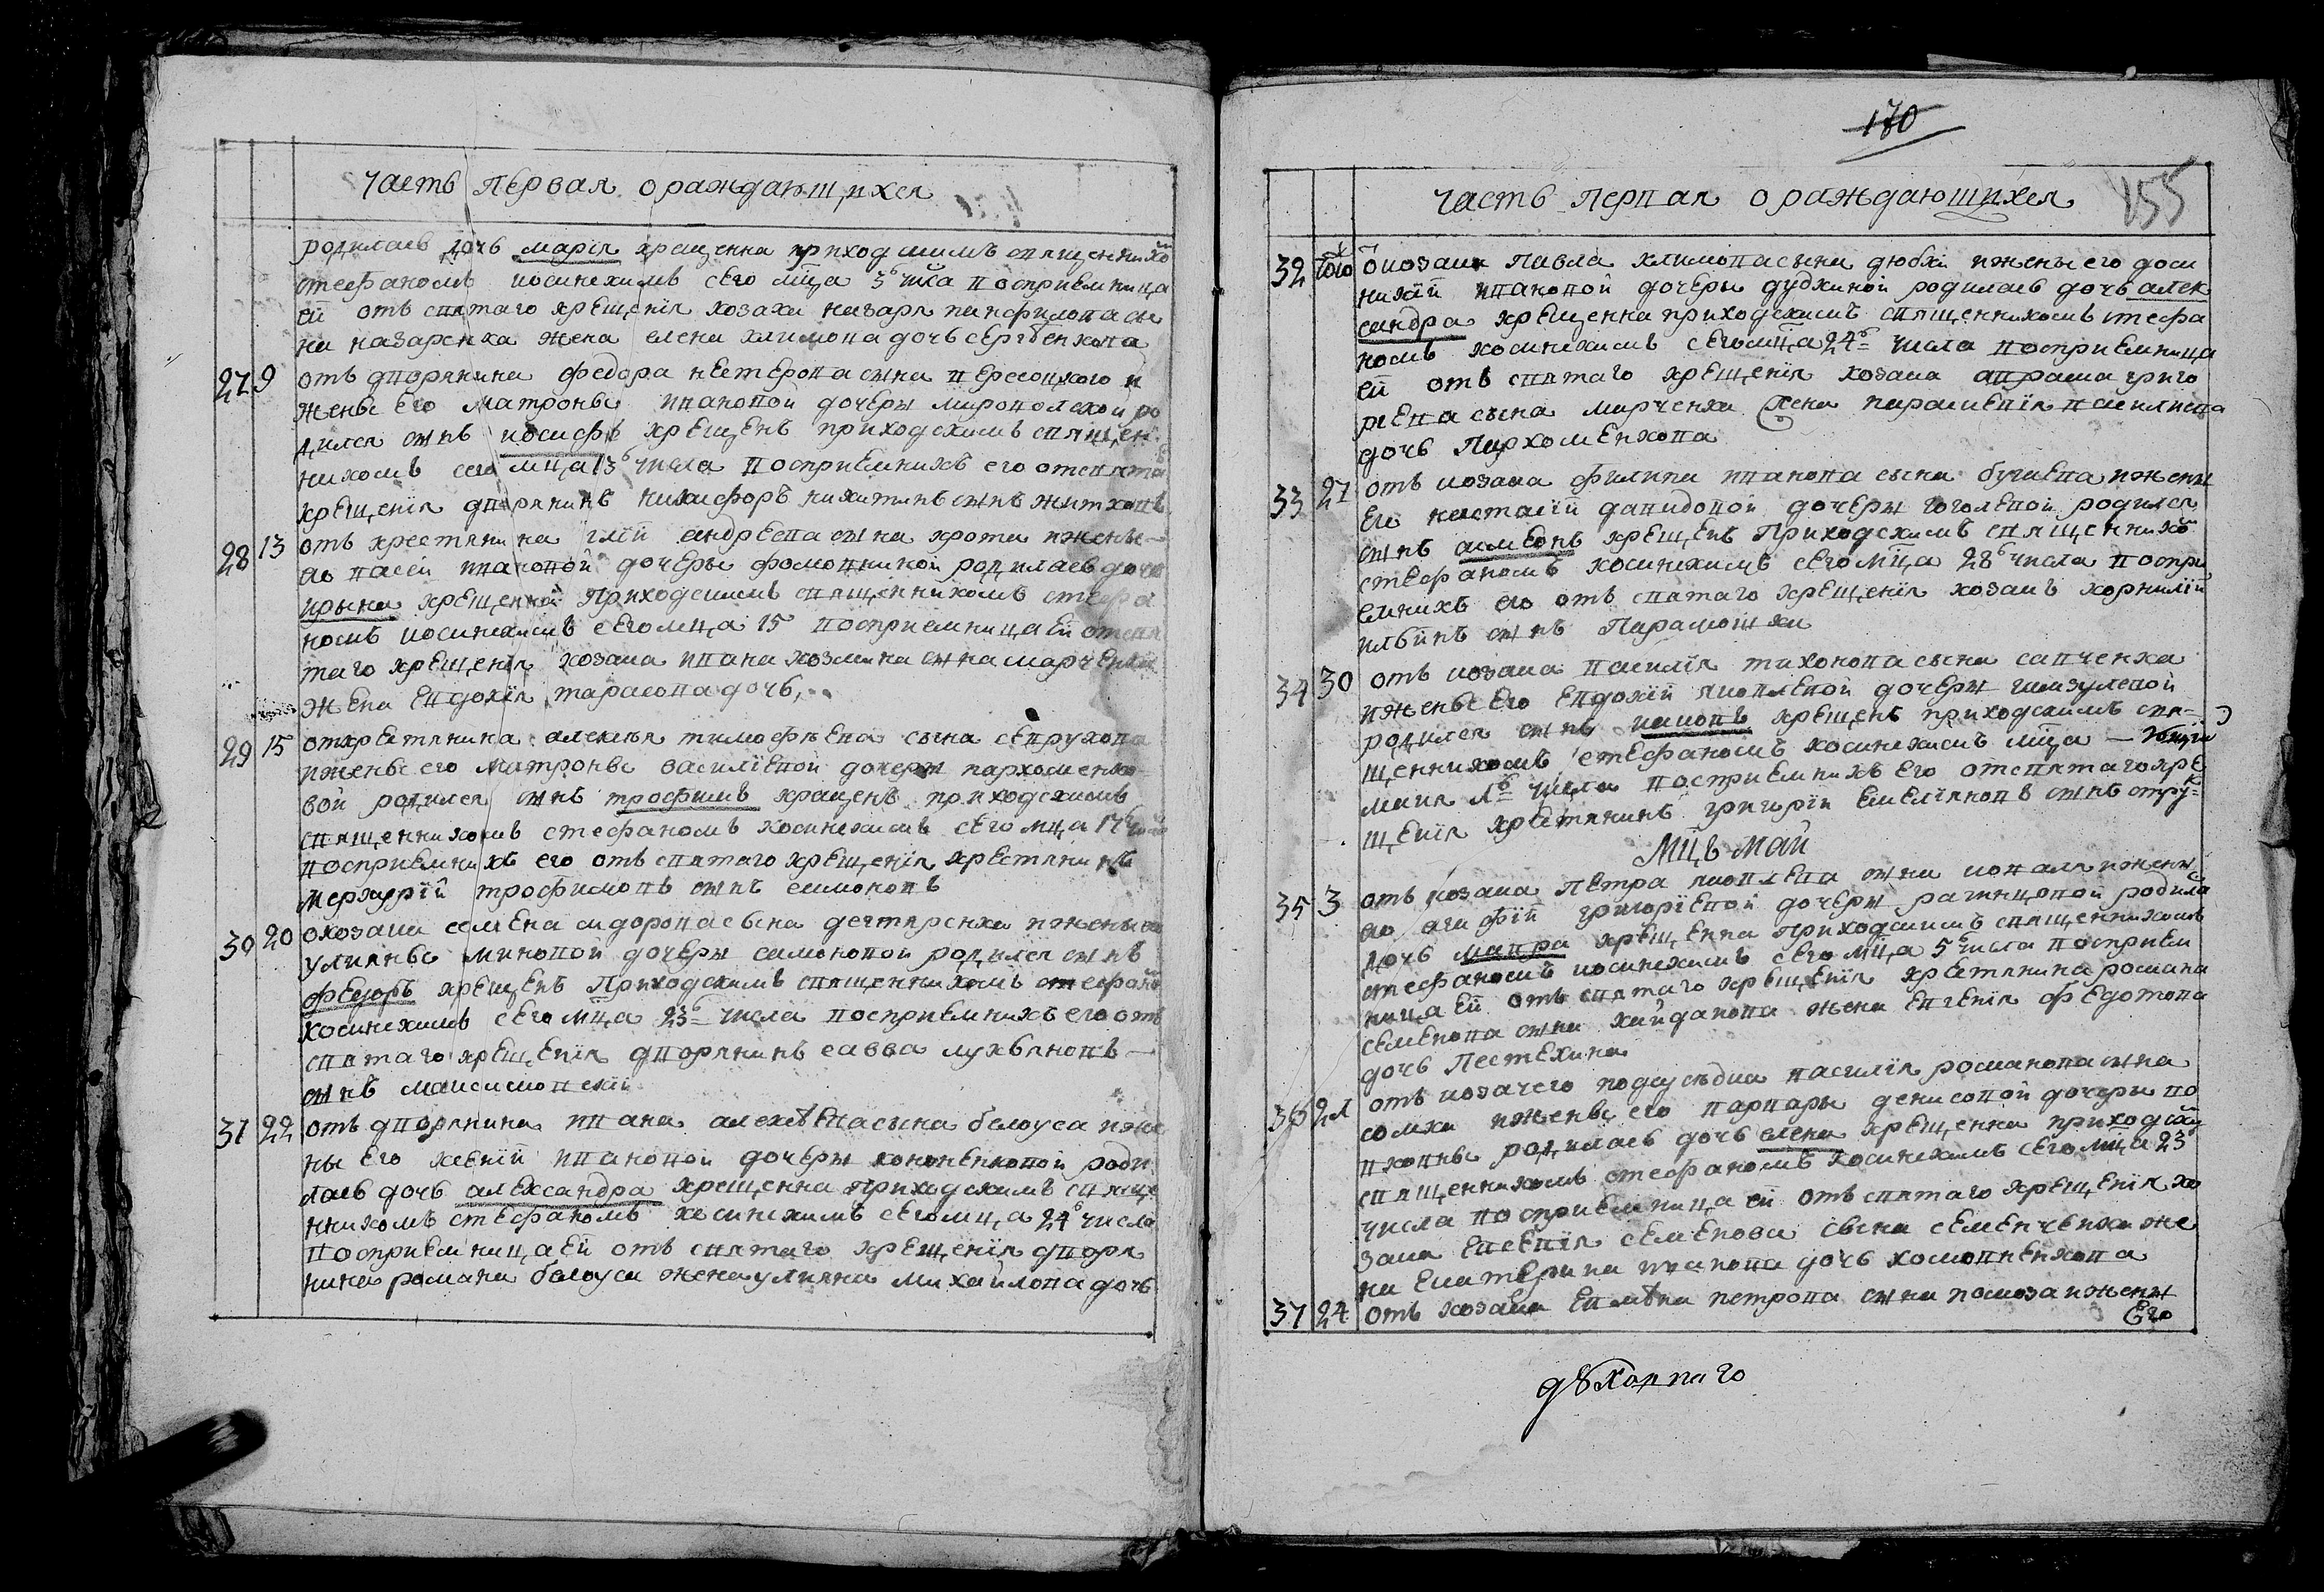 часть первая о раждающихся
родилась дочь марїя крещенна приходскимъ священнико
стефаномъ косинскимъ сего мца 3 числа восприемница
ей отъ святаго крещенїя козака назаря панфилова сы
на назаренка жена елена климова дочь
27 9 отъ дворянина федора нестерова сына пересоцкого и
жены его матроны ивановой дочеры миропольской ро
дился сынъ иосифъ крещенъ приходскимъ священ
никомъ сего мца 13 числа восприемникъ его отсвята
крещенїя дворянинъ никифоръ никитинъ сынъ житковъ
28 13 отъ крестянина илїи андреева сына крота и жены
его пасеи ивановой дочеры фомовниной родилась дочь
ирына крещенной приходскимъ священникомъ стефа
номъ косинскимъ сего мца 15 восприемница ей отсвя
таго крещенїя козака ивана козмина сына марченка
жена евдокїя тарасова дочь,
29 15 откретянина алексея тимофѣева сына
и жены его матроны василїевой дочеры пархоменко
вой родился сынъ трофимъ крещенъ приходскимъ
священникомъ стефаномъ косинскимъ сего мца 17 числа
восприемникъ его отъ святаго крещенїя крестянинъ
меркурїй трофимовъ сынъ симоновъ
30 20 о козака семена сидорова сына дегтяренка и жены его
улияны миновой дочеры симоновой родился сынъ
федоръ крещенъ приходскимъ священникомъ стефано
косинскимъ сего мца 23 числа восприемникъ его отъ
святаго крещенїя дворянинъ савва лукъяновъ —
сынъ максимовскїй
31 22 отъ дворянина ивана алексѣева сына белоуса и же
ны его ксенїи ивановой дочеры кононенковой роди
лась дочь александра крещенна приходскимъ свяще
нникомъ стефаномъ косинскимъ сего мца 24 числа
восприемница ей отъ святаго крещенїя дворя
нина романа белоуса жена улияна михайлова дочь
170
155
часть первая о раждающихся
32 того о козака павла климова сына дюбки и жены его доми
никїи ивановой дочеры дудкиной родилась дочь алек
сандра крещенна приходскимъ священникомъ стефа
номъ косинскимъ сего мца 24 числа восприемница
ей отъ святаго крещенїя козака авраама григо
рїева сына марченка жена параскевїя василиева
дочь пархоменкова
33 27 отъ козака филипа иванова сына бугаева и жены
его настасїи давидовой дочеры гоголевой родился
сынъ симеонъ крещенъ приходскимъ священнико
стефаномъ косинскимъ сего мца 28 числа воспри
емникъ его отъ святаго крещенїя козакъ корнилїй
ильинъ сынъ
34 30 отъ козака василїя тихонова сына савченка
и жены его евдокїи яковлевой дочеры
родился сынъ иаковъ крещенъ приходскимъ свя-
щенникомъ стефаномъ косинскимъ мца —
маия 1 числа восприемникъ его отсвятаго кре
щенїя крестянинъ григорїй емелїяновъ сынъ
Мцъ май
35 3 отъ козака петра яковлева сына коваля и жены
его агафїи григорїевой дочеры родила
дочь мавра крещенна приходскимъ священникомъ
стефаномъ косинскимъ сего мца 5 числа восприем
ница ей отъ святаго крещенїя крестянина романа
семенова сына кайданова жена евгенїя федотова
дочь пестехина
36 21 отъ козачего подсуседка василїя романова сына
сомка и жены его варвары денисовой дочеры
родилась дочь елена крещенна приходски
священникомъ стефаномъ косинскимъ сего мца 23
числа восприемница ей отъ святаго крещенїя ко
зака евсевїя семенова сына семенченка же
на екатерина иванова дочь
37 24 отъ козака петрова сына и жены
Его
духовнаго